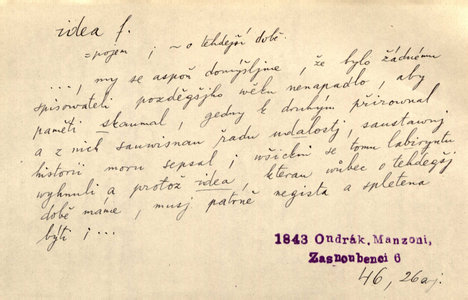 idea f.
= pojem ; ~ o tehdejší době.
..., my se aspoň domýšljme, že bylo žádnému
spisowateli pozděgšjho wěku nenapadlo, aby
paměti skaumal, gedny k druhým přirownal
a z nich sauwisnau řadu udalostj saustawnj
historii moru sepsal ; wšickni se tomu labiryntu
wyhnuli a protož idea, kterau wůbec o tehdegšj
době máme, musj patrně negista a spletena
býti ; ...
1843 Ondrák, Manzoni,
Zasnoubenci 6
46, 26aj.